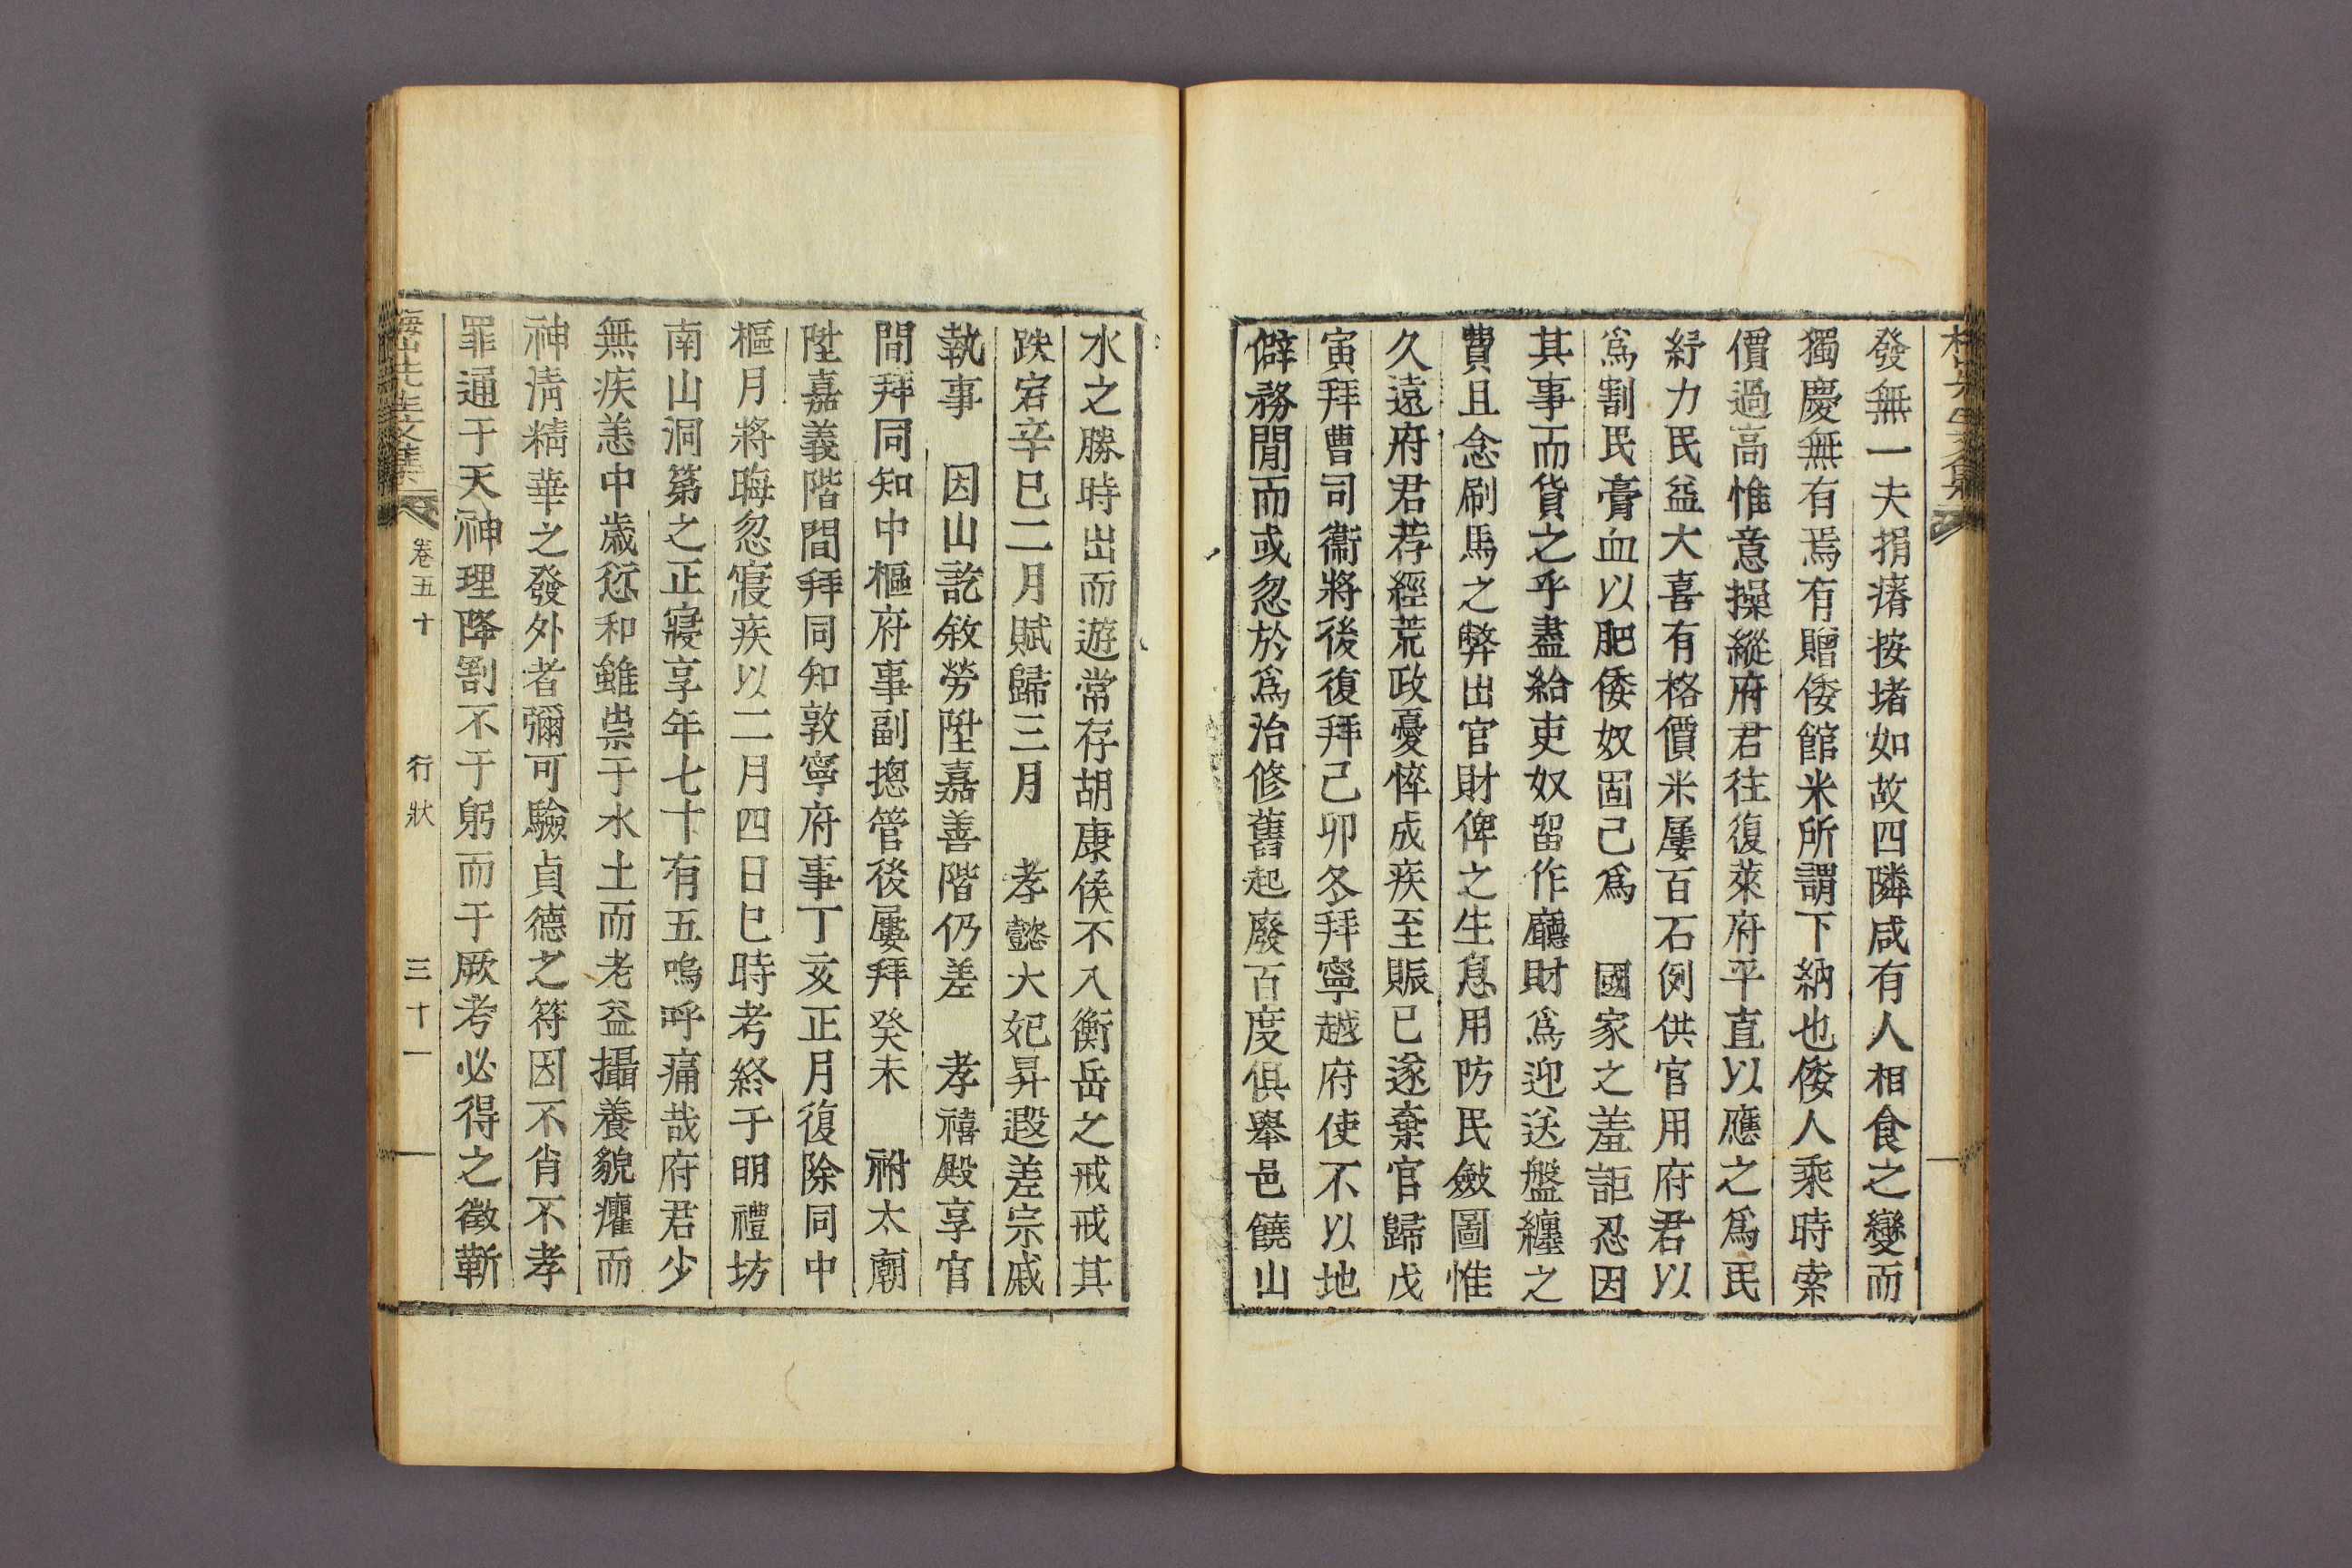 發無一夫捐瘠按堵如故四隣咸有人相食之變而
獨慶無有焉有贈倭館米所謂下納也倭人乘時索
價過高惟意操縱府君往復萊府平直以應之爲民
紓力民益大喜有格價米屢百石例供官用府君以
爲割民膏血以肥倭奴固已爲　國家之羞詎忍因
其事而貨之乎盡給吏奴留作廳財爲迎送盤纏之
費且念刷馬之弊出官財俾之生息用防民斂圖惟
久遠府君荐經荒政憂悴成疾至賑已遂棄官歸戊
寅拜曹司衞將後復拜己卯冬拜寧越府使不以地
僻務閒而或忽於爲治修舊起廢百度俱舉邑饒山
水之勝時出而遊常存胡康侯不入衡岳之戒戒其
跌宕辛巳二月賦歸三月　孝懿大妃昇遐差宗戚
執事　因山訖敘勞陞嘉善階仍差　孝禧殿享官
間拜同知中樞府事副摠管後屢拜癸未　祔太廟
陞嘉義階間拜同知敦寧府事丁亥正月復除同中
樞月將晦忽寢疾以二月四日巳時考終于明禮坊
南山洞第之正寢享年七十有五嗚呼痛哉府君少
無疾恙中歲愆和雖祟于水土而老益攝養貌癯而
神淸精華之發外者彌可驗貞德之符因不肖不孝
罪通于天神理降割不于躬而于厥考必得之徵靳
先生文集　卷五十　行狀　三十一